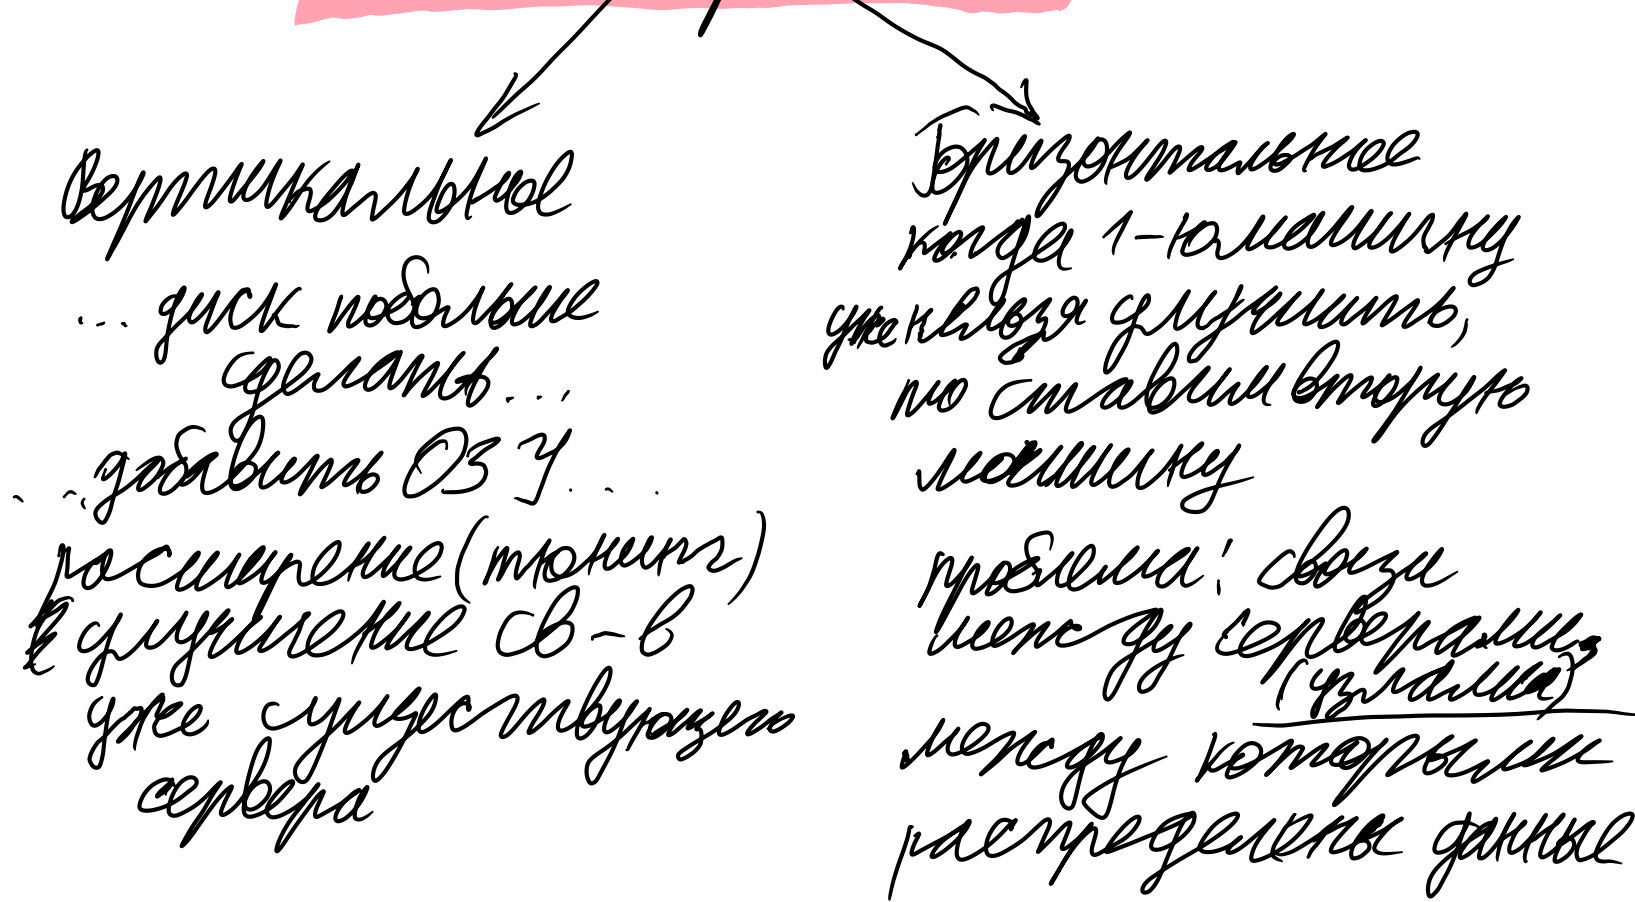 Вертикальное
... диск побольше
сделать ...
... добавить ОЗУ ...
расширение (тюнинг)
улучшение св-в
уже существующего
сервера
Горизонтальное
когда 1-ю машину
уже нельзя улучшить,
то ставим вторую
машину
проблема: связи
между серверами,
(узлами)
между которыми
распределены данные